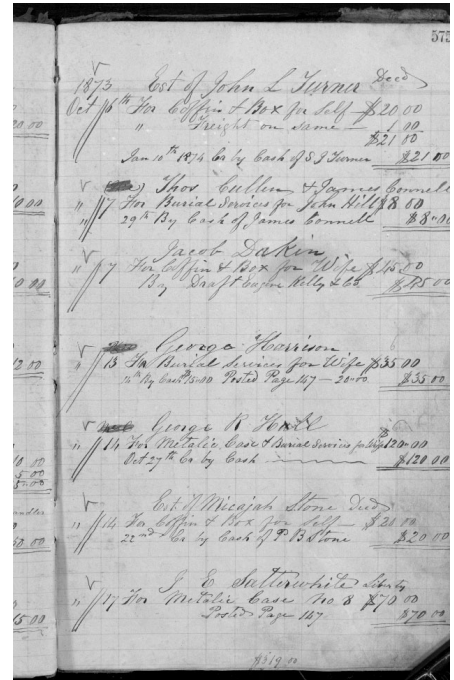 575
1873 Est of John L Turner Decd
Oct 6th For Coffin & Box for Self — $20 00
" Freight on same — 1 00
20 00 $21 00
Jan 10th 1874 Cr by Cash of S J Turner $21 00
Thos Cullen & James Connell
" 7 For Burial Services for John Hill $8 00
" 29th By Cash of James Connell $8 00
Jacob Dakin
" 7 For Coffin & Box for Wife $45 00
By Draft Eugene Kelly & Co $45 00
George Harrison
" 13 For Burial Services for Wife $35 00
By Cash 15 00 Posted Page 147 — 20 00 $35 00
George R Hall
" 14 For Metalic Case & Burial Services for Wife $120 00
Oct 27th Cr by Cash — $120 00
5 00
5 00
Est of Micajah Stone Decd
" 14 For Coffin & Box for Self — $20 00
22nd Cr by Cash of P B Stone $20 00
J E Satterwhite Liberty
" 17 For Metalic Case No. 8 $70 00
15 00 Posted Page 147 $70 00
$319 00